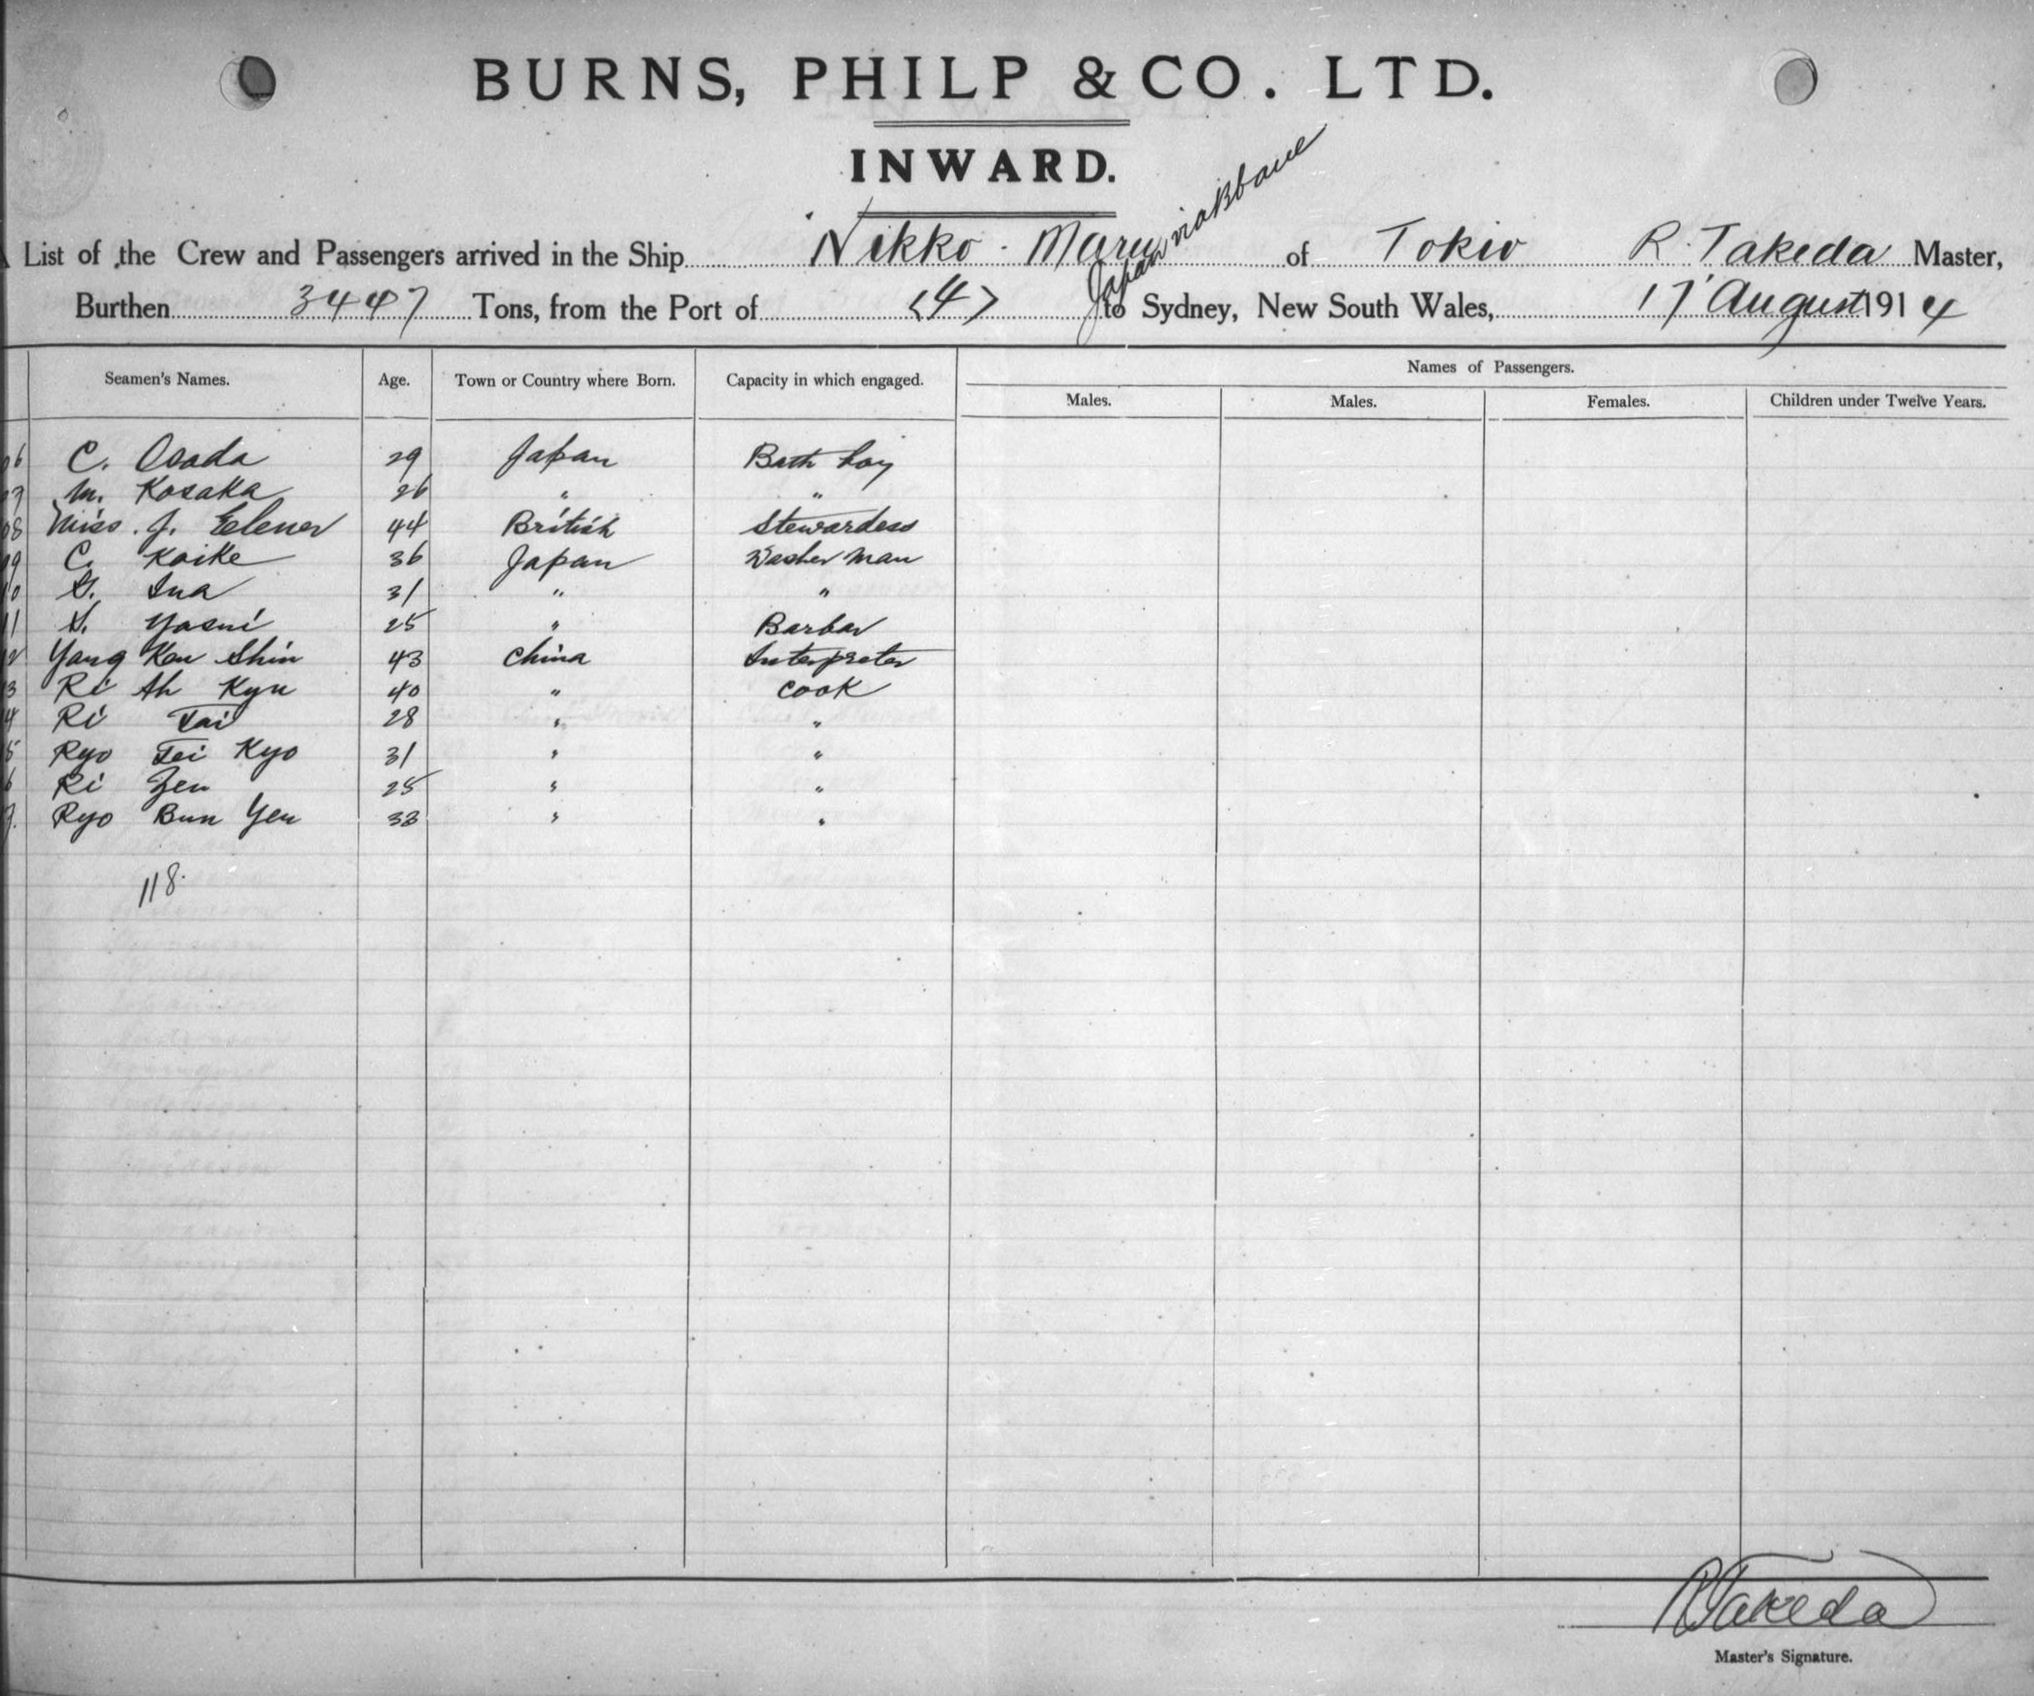 BURNS, PHILP & CO. LTD.
INWARD.
Japan via Bbane
A List of the Crew and Passengers arrived in the Ship Nikko Maru of Tokio R. Takeda Master,
Burthen 3447 Tons, from the Port of <4> to Sydney, New South Wales, 17 August 1914
Seamen's Names. Age. Town or Country where Born. Capacity in which engaged. Names of Passengers.
Males. Males. Females. Children under Twelve Years.
06 C. Osada 29 Japan Bath boy
07 M. Kosaka 26 " "
08 Miss J. 44 British Stewardess
09 C. Koike 36 Japan Washer man
10 Ina 31 " "
11 Yasui 25 " Barbar
12 Yang Kon Shin 43 China Interpreter
13 Ri Ah Kyu 40 " Cook
14 Ri Tai 28 " "
15 Ryo Tei Kyo 31 " "
16 Ri Zen 25 " "
17. Ryo Bun Yen 33 " "
118.
R Takeda
Master's Signature.